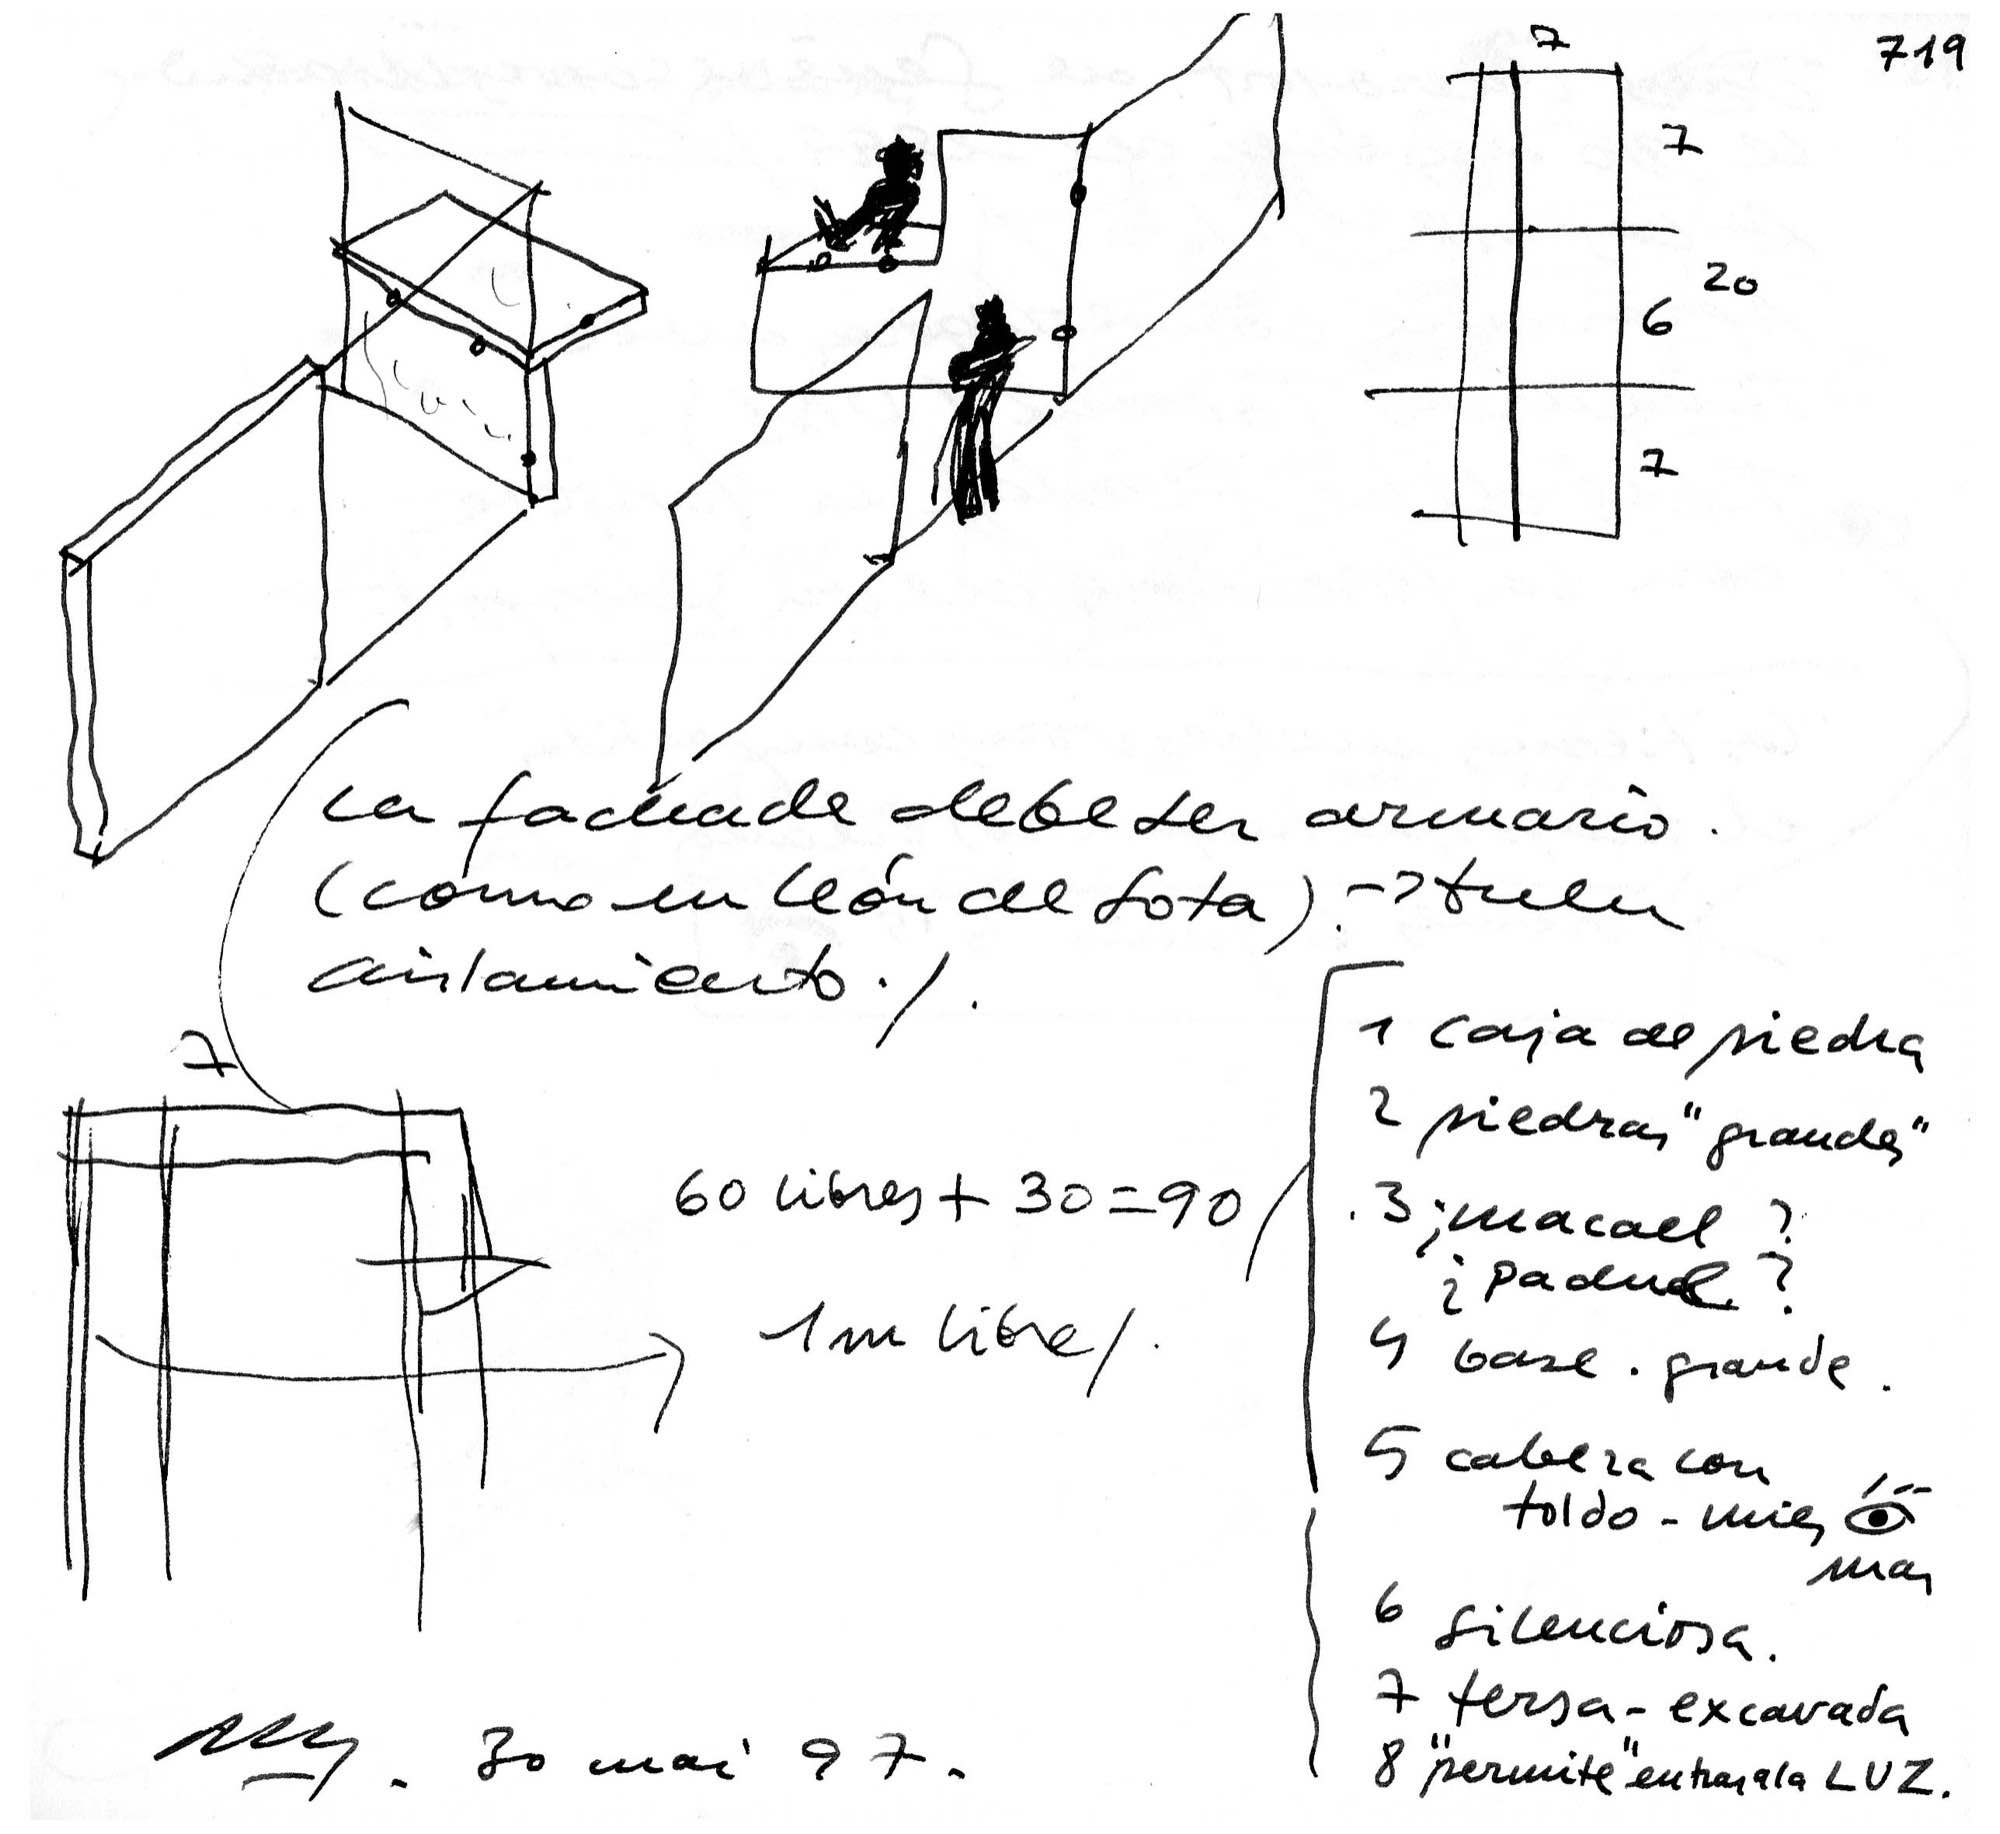 719
7
7
20
6
7
La fachada debe ser armario.
(como en León de Sota). ->
aislamiento./.
7
60 libres + 30 = 90
1m libre/.
1 caja de piedra
2 piedras "grandes"
.3 ¿macael?
¿Padul?
4 base . grande.
5 cabeza con
toldo - mies
mas
6 silenciosa.
7 tersa - excavada
8 "permite" entrar a la LUZ.
. 30 mai 97.